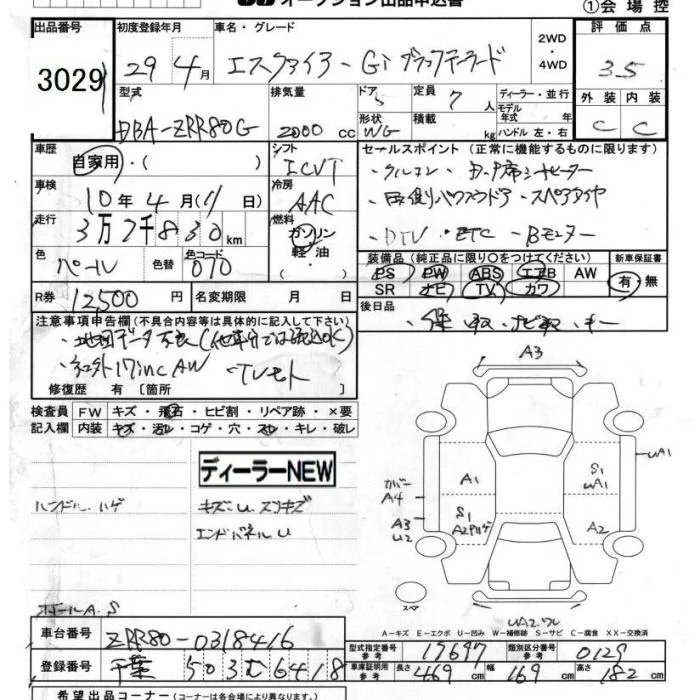 オークション出品申込書
①会場控
出品番号 初度登録年月 車名・グレード 2WD ・ 4WD 評価点
3029 29年4月 エスクァイア - Gi ブラックテーラード 3.5
型式 排気量 ドア 5 定員 7人 ディーラー・並行 外装 内装
モデル年式 年
DBA-ZRR80G 2000cc 形状 WG 積載 kg ハンドル 左・右 C C
車歴 自家用・( ) シフト ICVT セールスポイント (正常に機能するものに限ります)
車検 10年4月(11日) 冷房 AAC
・両側パワースライドドア ・スペアタイヤ
走行 3万7千830km 燃料 ガソリン・軽油・
・DTV ・ETC ・Bモニター
色 パール 色替 色コード 070
装備品(純正品に限り○をつけてください) 新車保証書
PS PW ABS エアB AW 有・無
SR ナビ TV カワ
R券 12,500円 名変期限 月 日 後日品
注意事項申告欄(不具合内容等は具体的に記入して下さい)
・社外17inc AW ・TVモト
修復歴 有 〔箇所 〕
検査員記入欄 FW キズ・飛石・ヒビ割・リペア跡・×要
内装 キズ・汚レ・コゲ・穴・スレ・キレ・破レ
ディーラーNEW
ハンドル.ハゲ キズ.U.スリキズ
エンドパネルU
ホイールA.S
A3
UA1
A1
S1
UA1
カバー
A4
A3
U2
S1
A2
スペア
UA2.ワレ
A-キズ E-エクボ U-凹み W-補修跡 S-サビ C-腐食 XX-交換済
車台番号 ZRR80-0318416
型式指定番号 参考 17697 類別区分番号 参考 0129
登録番号 千葉 503 む 6418
車庫証明用 参考 長さ 469cm 幅 169cm 高さ 182cm
希望出品コーナー(コーナーは各会場により異なります)